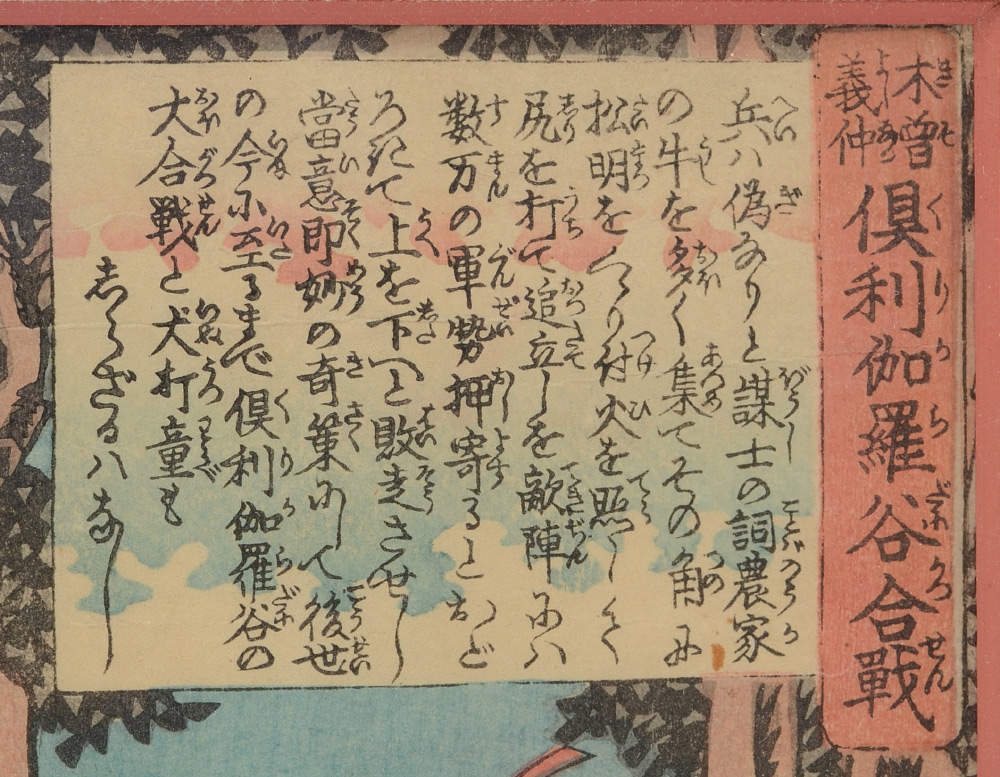 木曽義仲 倶利伽羅谷合戰
兵ハ偽なりと謀士の詞農家
の牛を多く集てその角に
松明をくゝり付火を照しくて
尻を打て追立しを敵陣にハ
数万の軍勢押寄ると
ろたて上を下へと敗走させし
當意即妙の奇策にして後世
の今に至るまで倶利伽羅谷の
大合戰と犬打童も
志らざるハなし